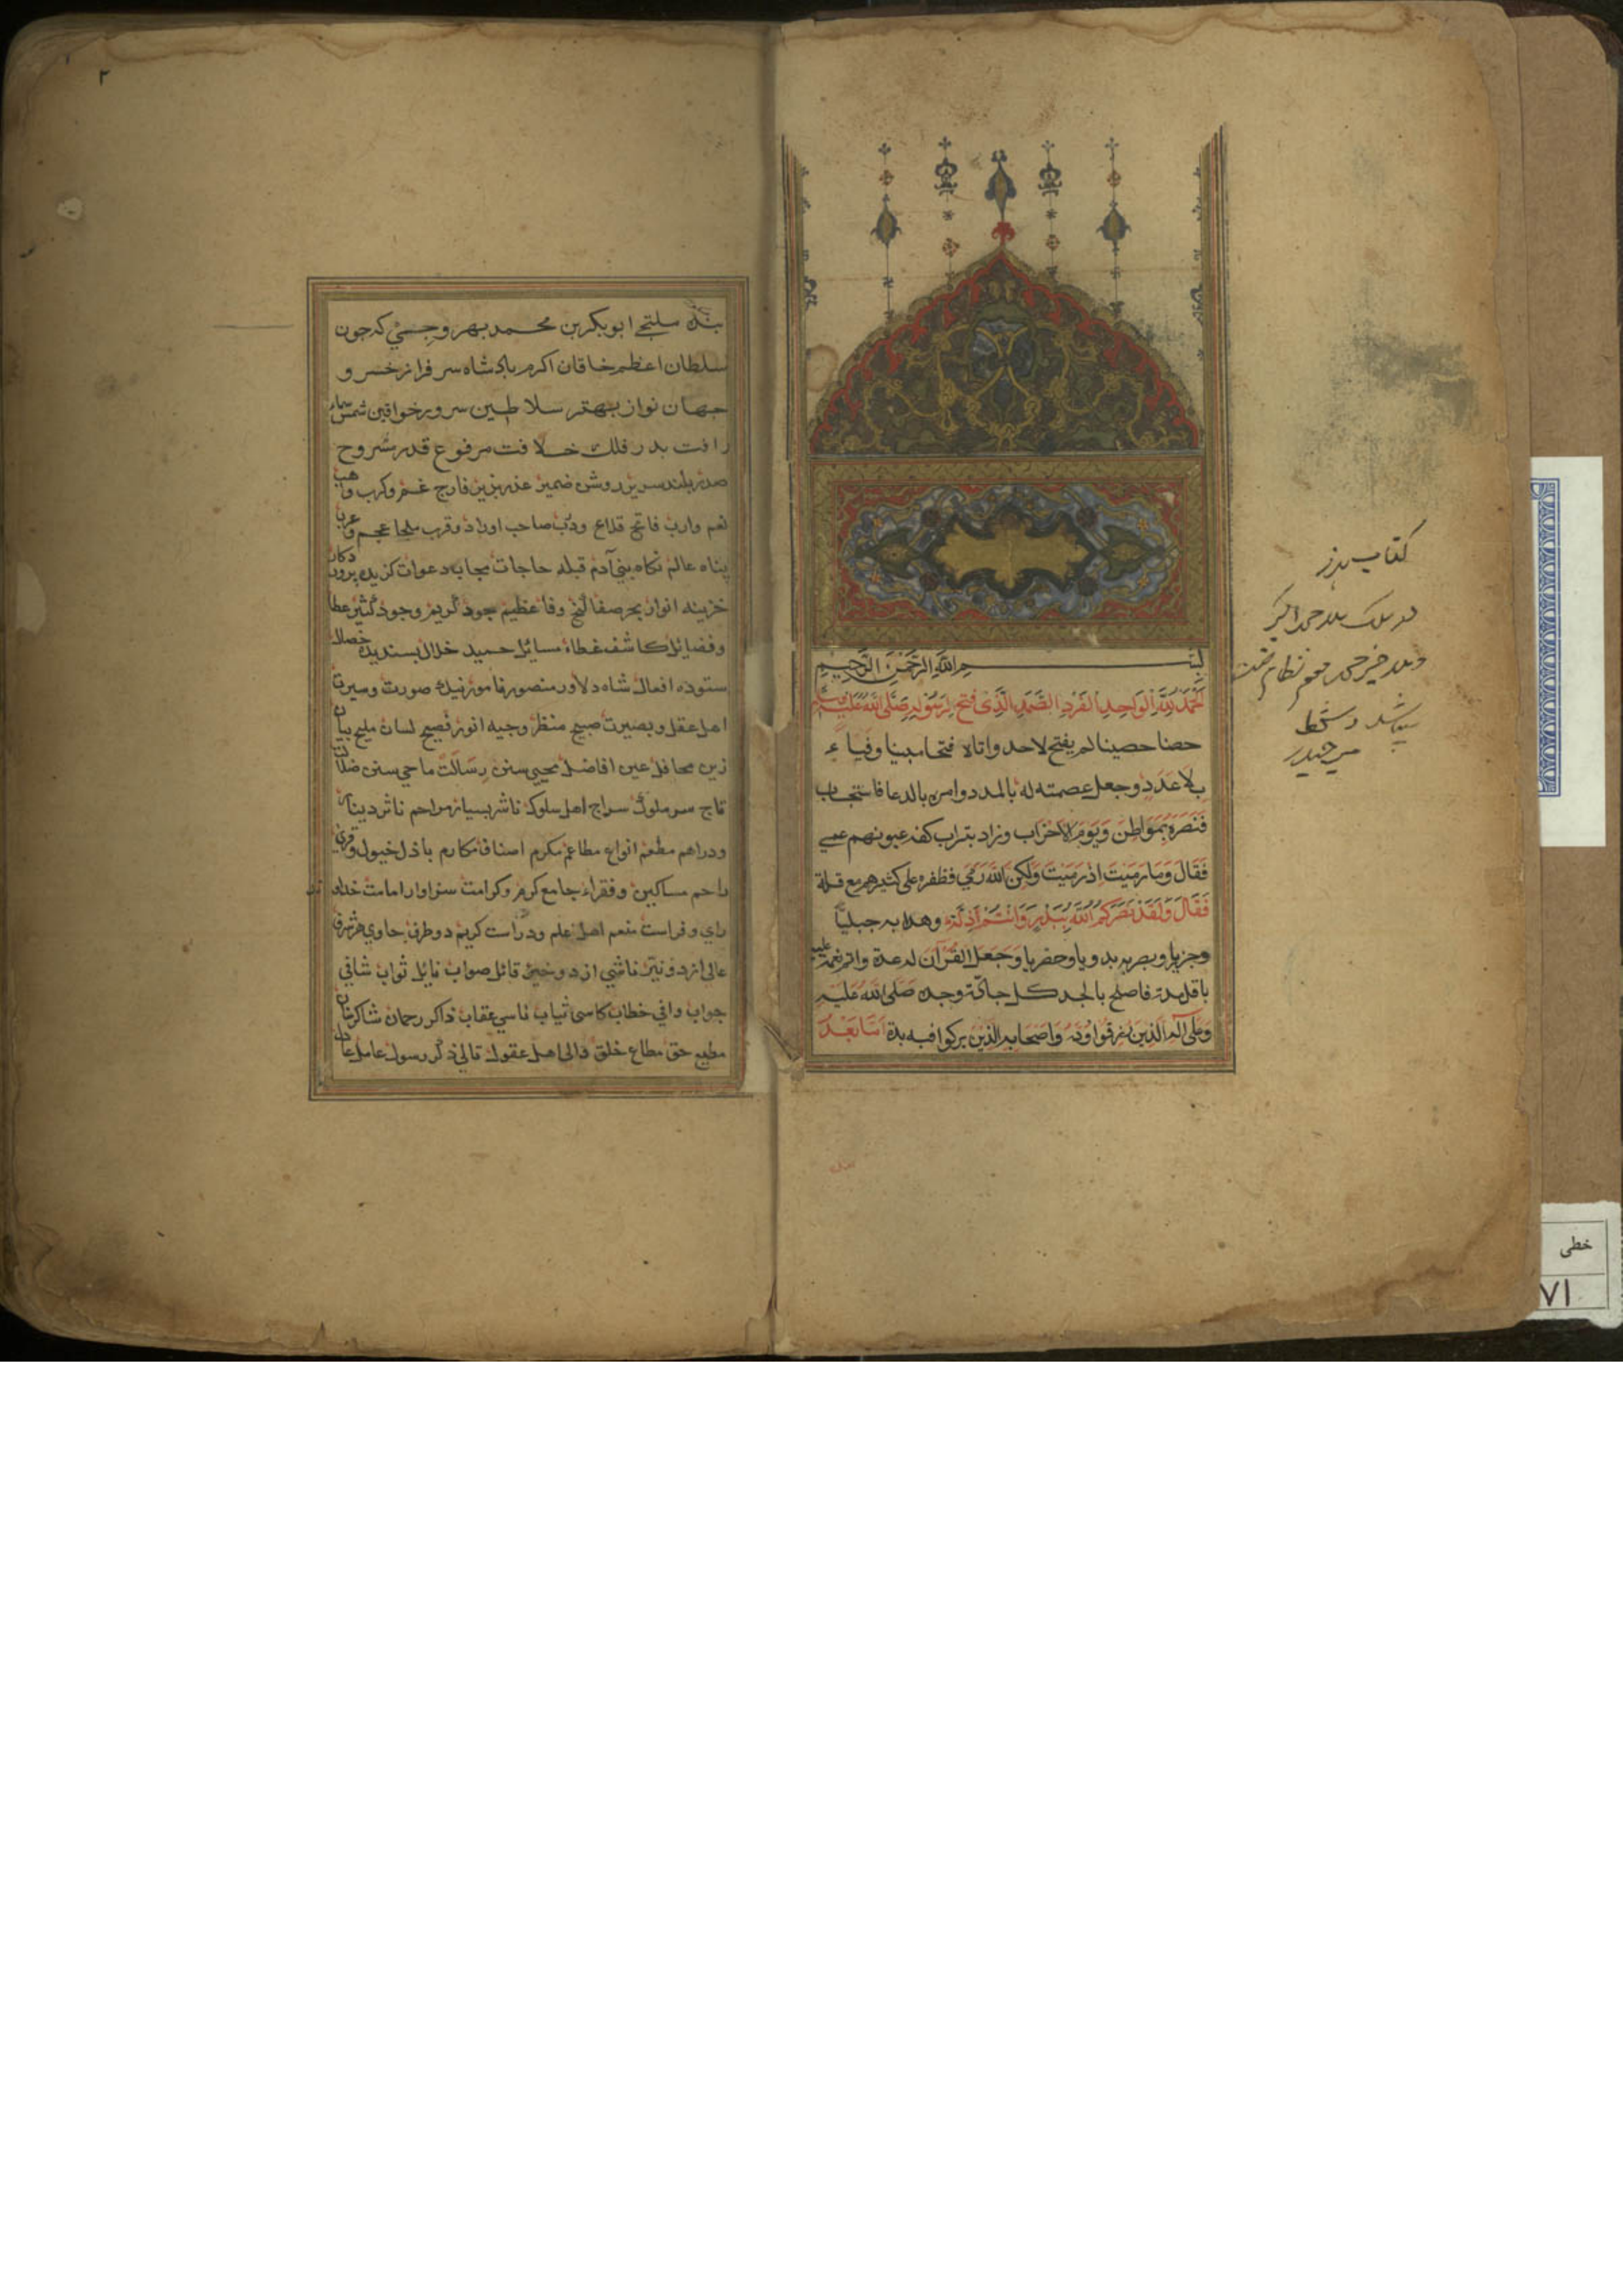 بسم الله الرحمن الرحيم
الحمد لله الواحد الفرد الصمد الذی فتح لرسوله صلی الله علیه وسلم
حصنا حصینا لم یفتح لاحد واتاه فتحا مبینا وفیاء
بلا عدد وجعل عصمته له بالمدد وامره بالدعا فاستجاب
فنصره بمواطن ویوم الاحزاب وزاد بتراب کفه عیونهم عمی
فقال وما رمیت اذ رمیت ولکن الله رمی فظفره علی کثیرهم مع قلة
فقال ولقد نصرکم الله ببدر وانتم اذلة وهداه به جبلیا
وجزیریا وبصر به بدویا وحضریا وجعل القرآن له عدة واتم نعمه علیه
باقل مدة فاصلح بالجد کل جادة وجده صلی الله علیه
وعلی آله الذین لم یفرقوا وده واصحابه الذین برکوا فیه بده اما بعد
بنده ملتجی ابوبکر بن محمد بهروجی که جون
سلطان اعظم خاقان اکرم بادشاه سرفراز خسرو
جهان نواز بهتر سلاطین سرور خواقین شمس سماء
رافت بدر فلک خلافت مرفوع قدر مشروح
صدر بلند سریر روشن ضمیر عذر پزیر فارج غم وکرب واهب
نعم وارب فاتح قلاع ودرب صاحب اوراد وقرب ملجا عجم وعرب
پناه عالم نکاه بنی آدم قبله حاجات مجاب دعوات کزیده
خزینه انوار بحر صفا لنج وفا عظیم جود کریم وجود کثیر عطا
وفضایل کاشف غطاء مسایل حمید خلال بسندیده خصال
ستوده افعال شاه دلاور منصور نامور نیک صورت وسیرت
اهل عقل وبصیرت صبیح منظر وجیه انور فصیح لسان ملیح بیان
زین محافل عین افاضل محیی سنن رسالت ماحی سنن ضلالت
تاج سر ملوک سراج اهل سلوک ناشر بسیار مراحم ناثر دینار
ودراهم مطعم انواع مطاعم مکرم اصناف مکارم باذل خیول
راحم مساکین وفقراء جامع کرم وکرامت سزاوار امامت خداوند
رای وفراست منعم اهل علم ودراست کریم دو طرف حاوی هر شرف
عالی از دو نیر ناشی از دو خیر قائل صواب نایل ثواب شافی
جواب وافی خطاب کاسی ثیاب ناسی عقاب ذاکر رحمان شاکر
مطیع حق مطاع خلق والی اهل عقول تالی ذکر رسول عامل عادل
کتاب هذا
۲
خطی
۷۱